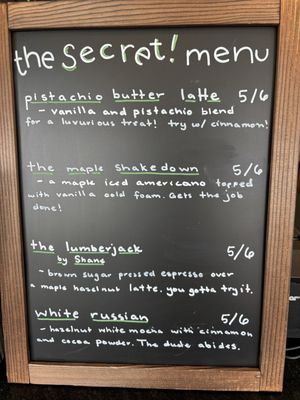 the secret! menu
pistachio butter latte 5/6
- vanilla and pistachio blend
for a luxurious treat! try w/ cinnamon!
the maple shakedown 5/6
- a maple iced americano topped
with vanilla cold foam. Gets the job
done!
the lumberjack 5/6
by Shane
- brown sugar pressed espresso over
a maple hazelnut latte. you gotta try it.
white russian 5/6
- hazelnut white mocha with cinnamon
and cocoa powder. The dude abides.